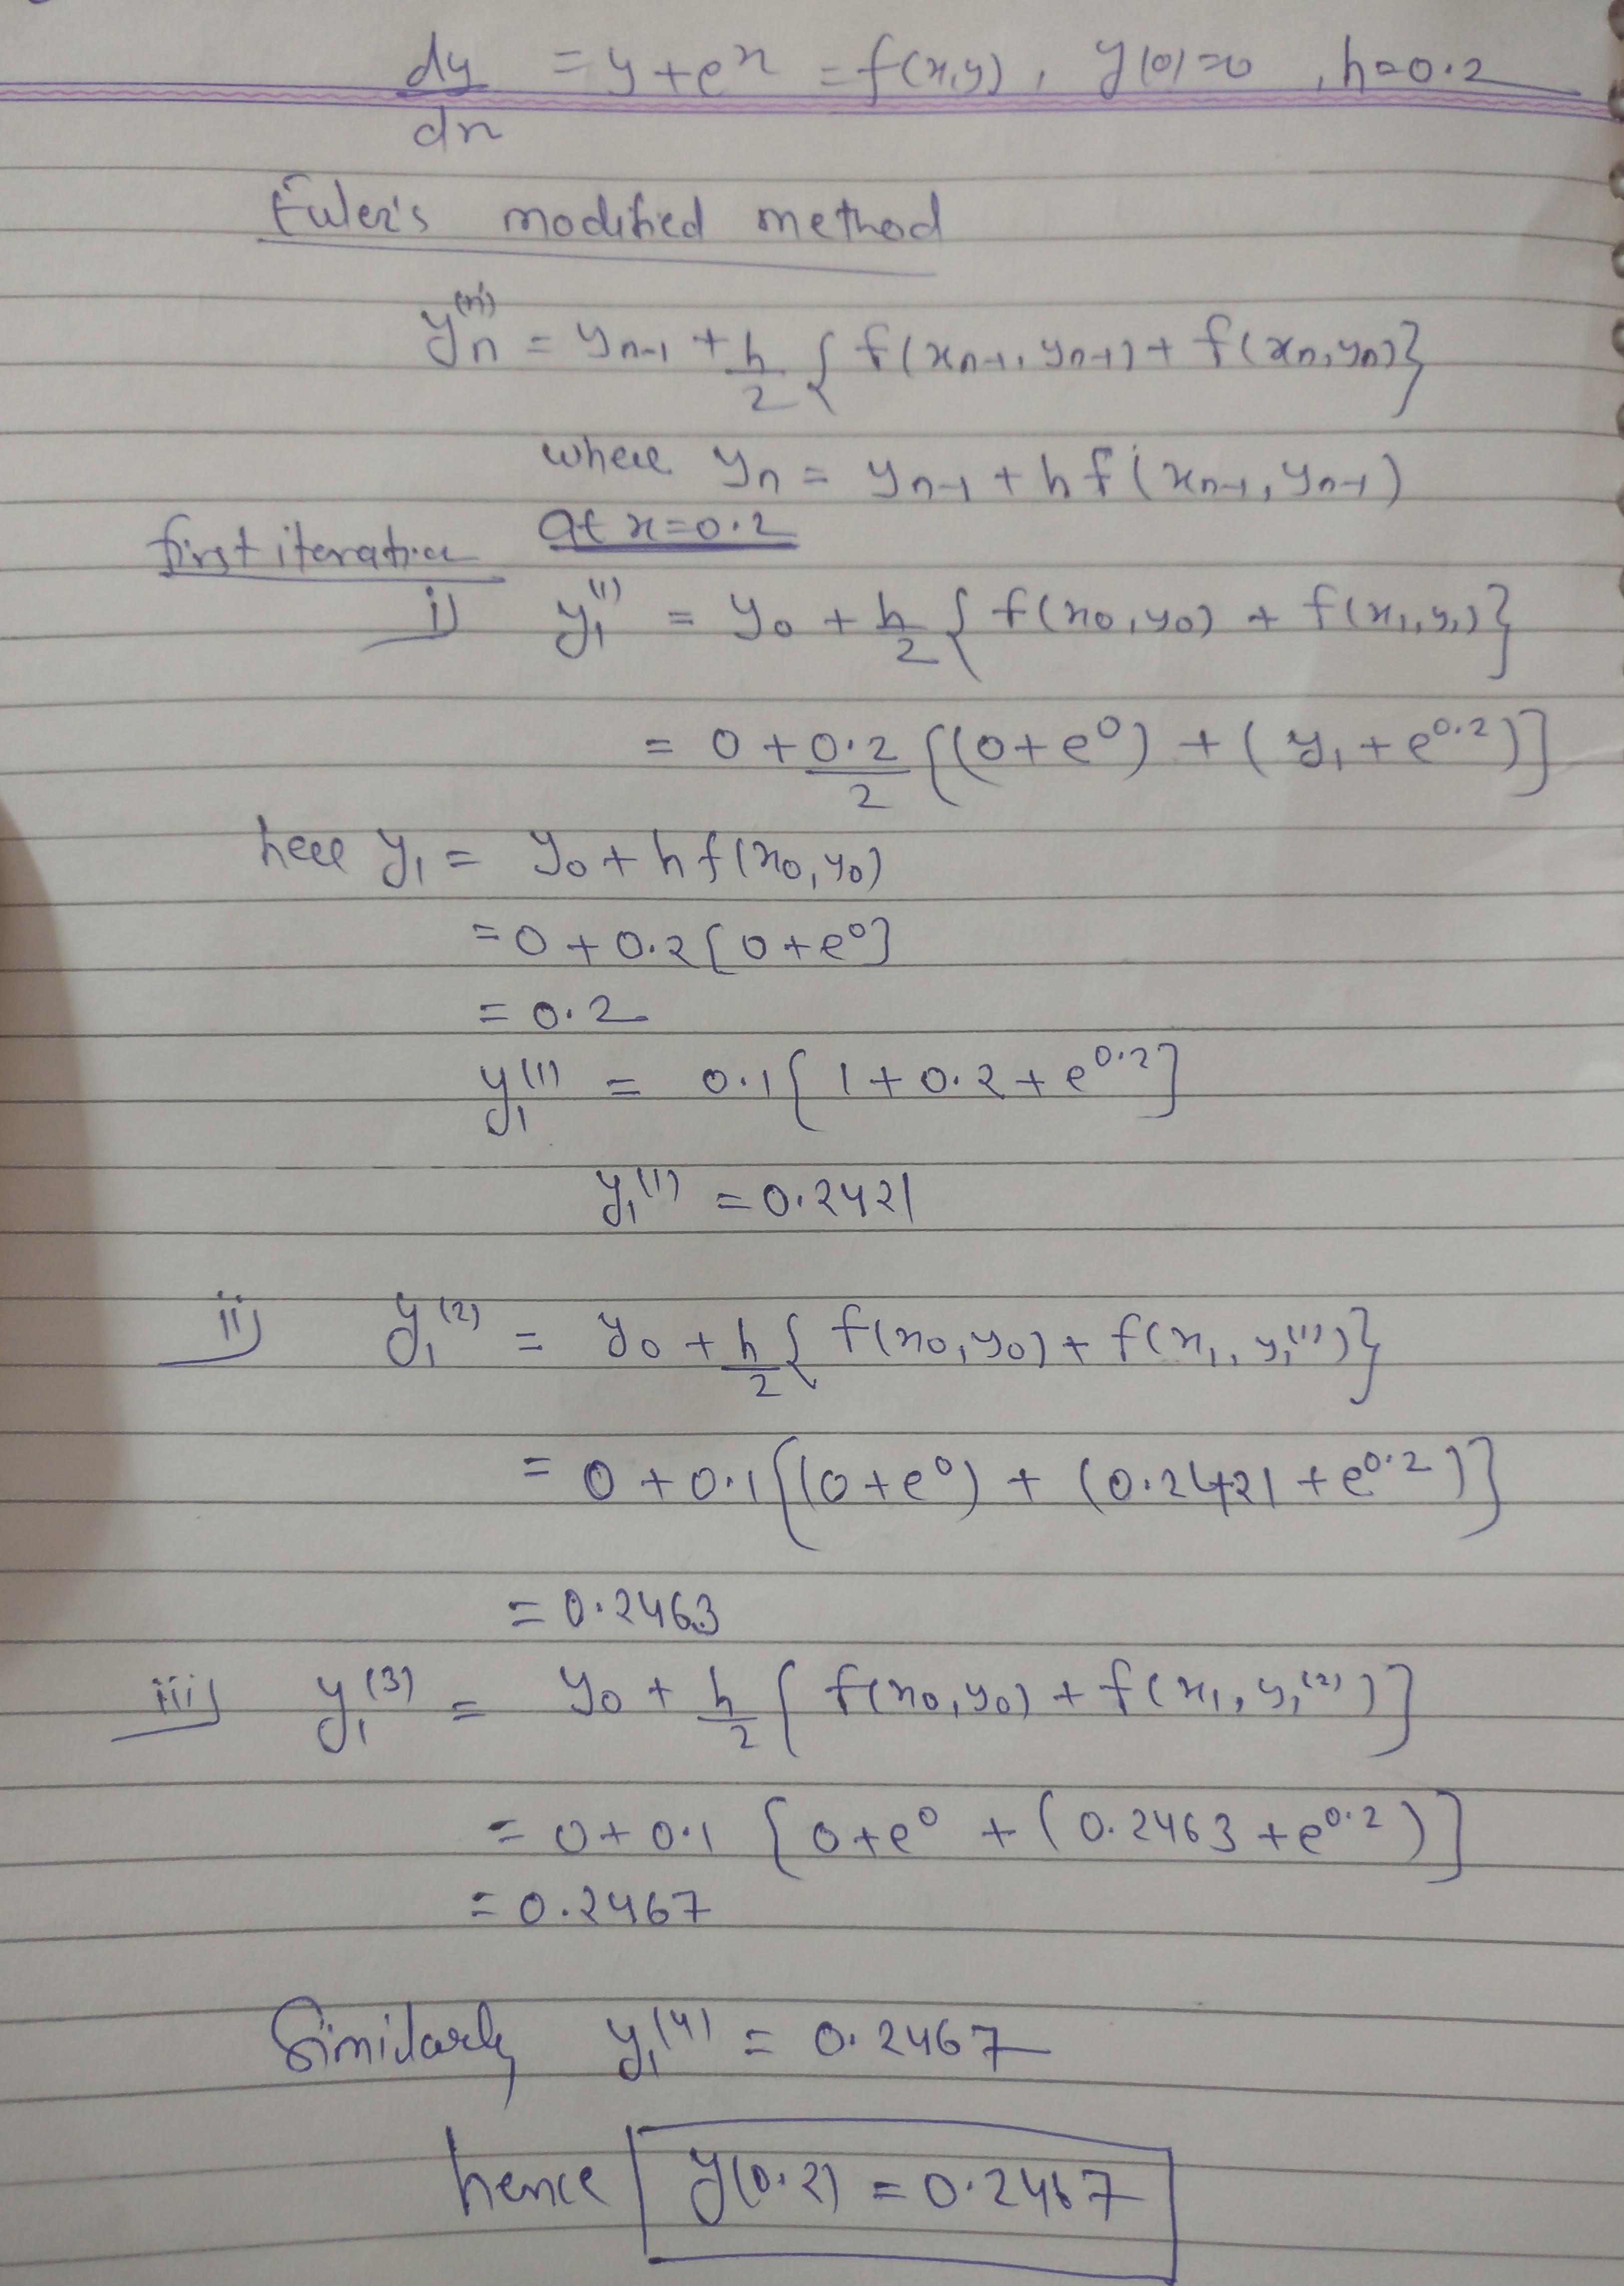 dy/dx = y + e^x = f(x,y), y(0)=0, h=0.2
Euler's modified method
y_n^(n) = y_n-1 + h/2 { f(x_n-1, y_n-1) + f(x_n, y_n) }
where y_n = y_n-1 + h f(x_n-1, y_n-1)
first iteration at x=0.2
i) y_1^(1) = y_0 + h/2 { f(x_0, y_0) + f(x_1, y_1) }
= 0 + 0.2/2 {(0+e^0) + (y_1 + e^0.2)]
here y_1 = y_0 + h f(x_0, y_0)
= 0 + 0.2 [0+e^0]
= 0.2
y_1^(1) = 0.1 { 1 + 0.2 + e^0.2 ]
y_1^(1) = 0.2421
ii) y_1^(2) = y_0 + h/2 { f(x_0, y_0) + f(x_1, y_1^(1)) }
= 0 + 0.1 {(0+e^0) + (0.2421 + e^0.2)}
= 0.2463
iii) y_1^(3) = y_0 + h/2 { f(x_0, y_0) + f(x_1, y_1^(2)) ]
= 0 + 0.1 { 0+e^0 + (0.2463 + e^0.2) ]
= 0.2467
Similarly y_1^(4) = 0.2467
hence y(0.2) = 0.2467